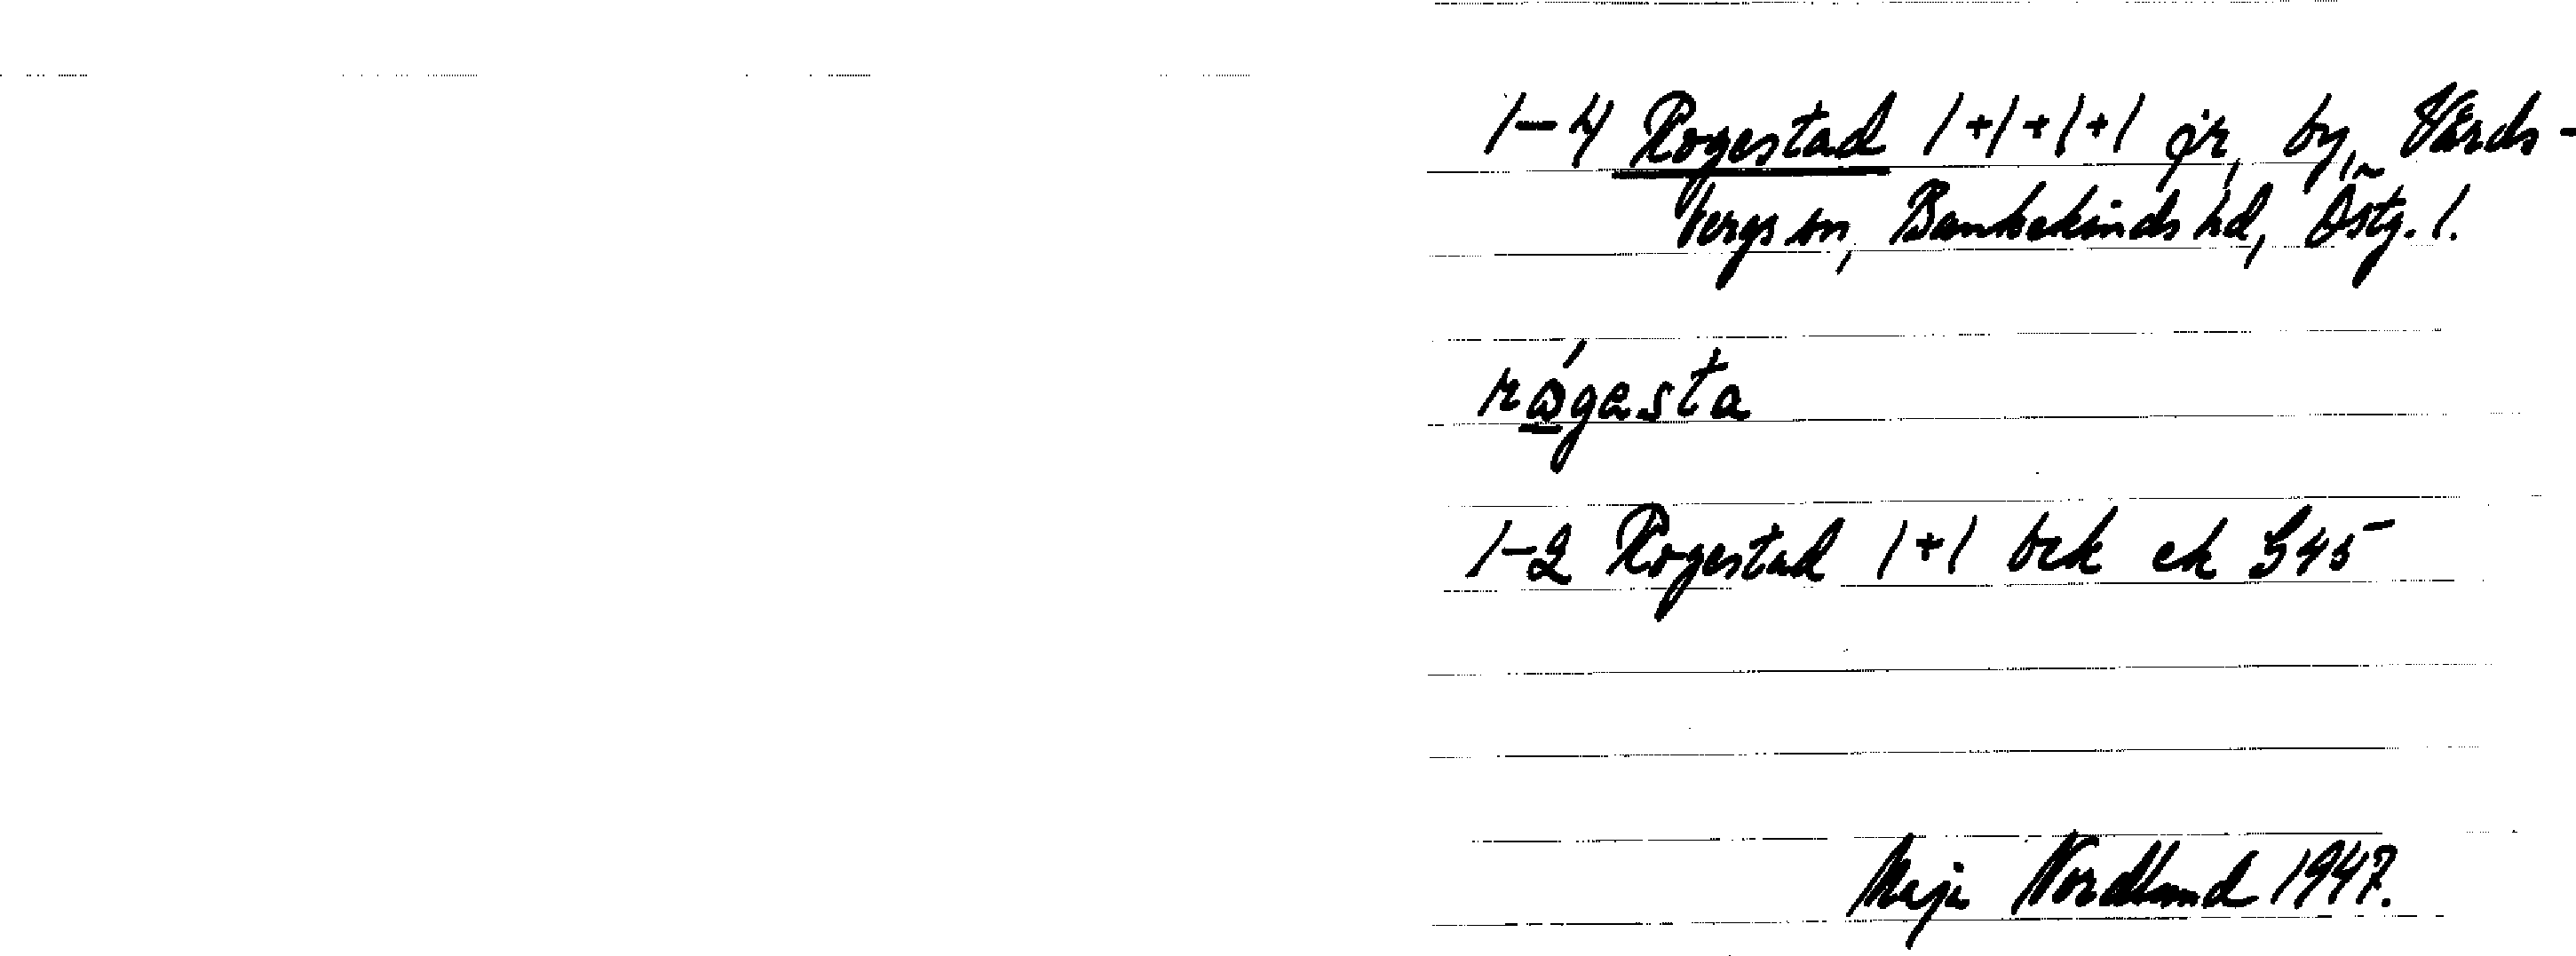 1-4 Rogestad 1+1+1+1 jr, by, Vårds-
bergs sn, Bankekinds hd, Östg. l.
rǻgesta
1-2 Rogestad 1+1 bek ek S45
Maja Nordlund 1947.